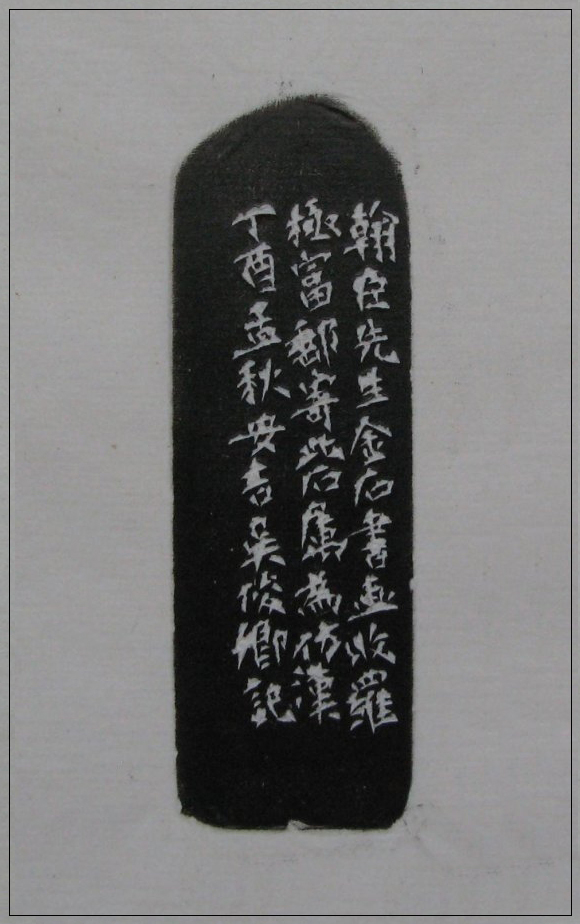 翰臣先生金石書畫收羅
極富郵寄此石屬為仿漢
丁酉孟秋安吉吳俊卿記